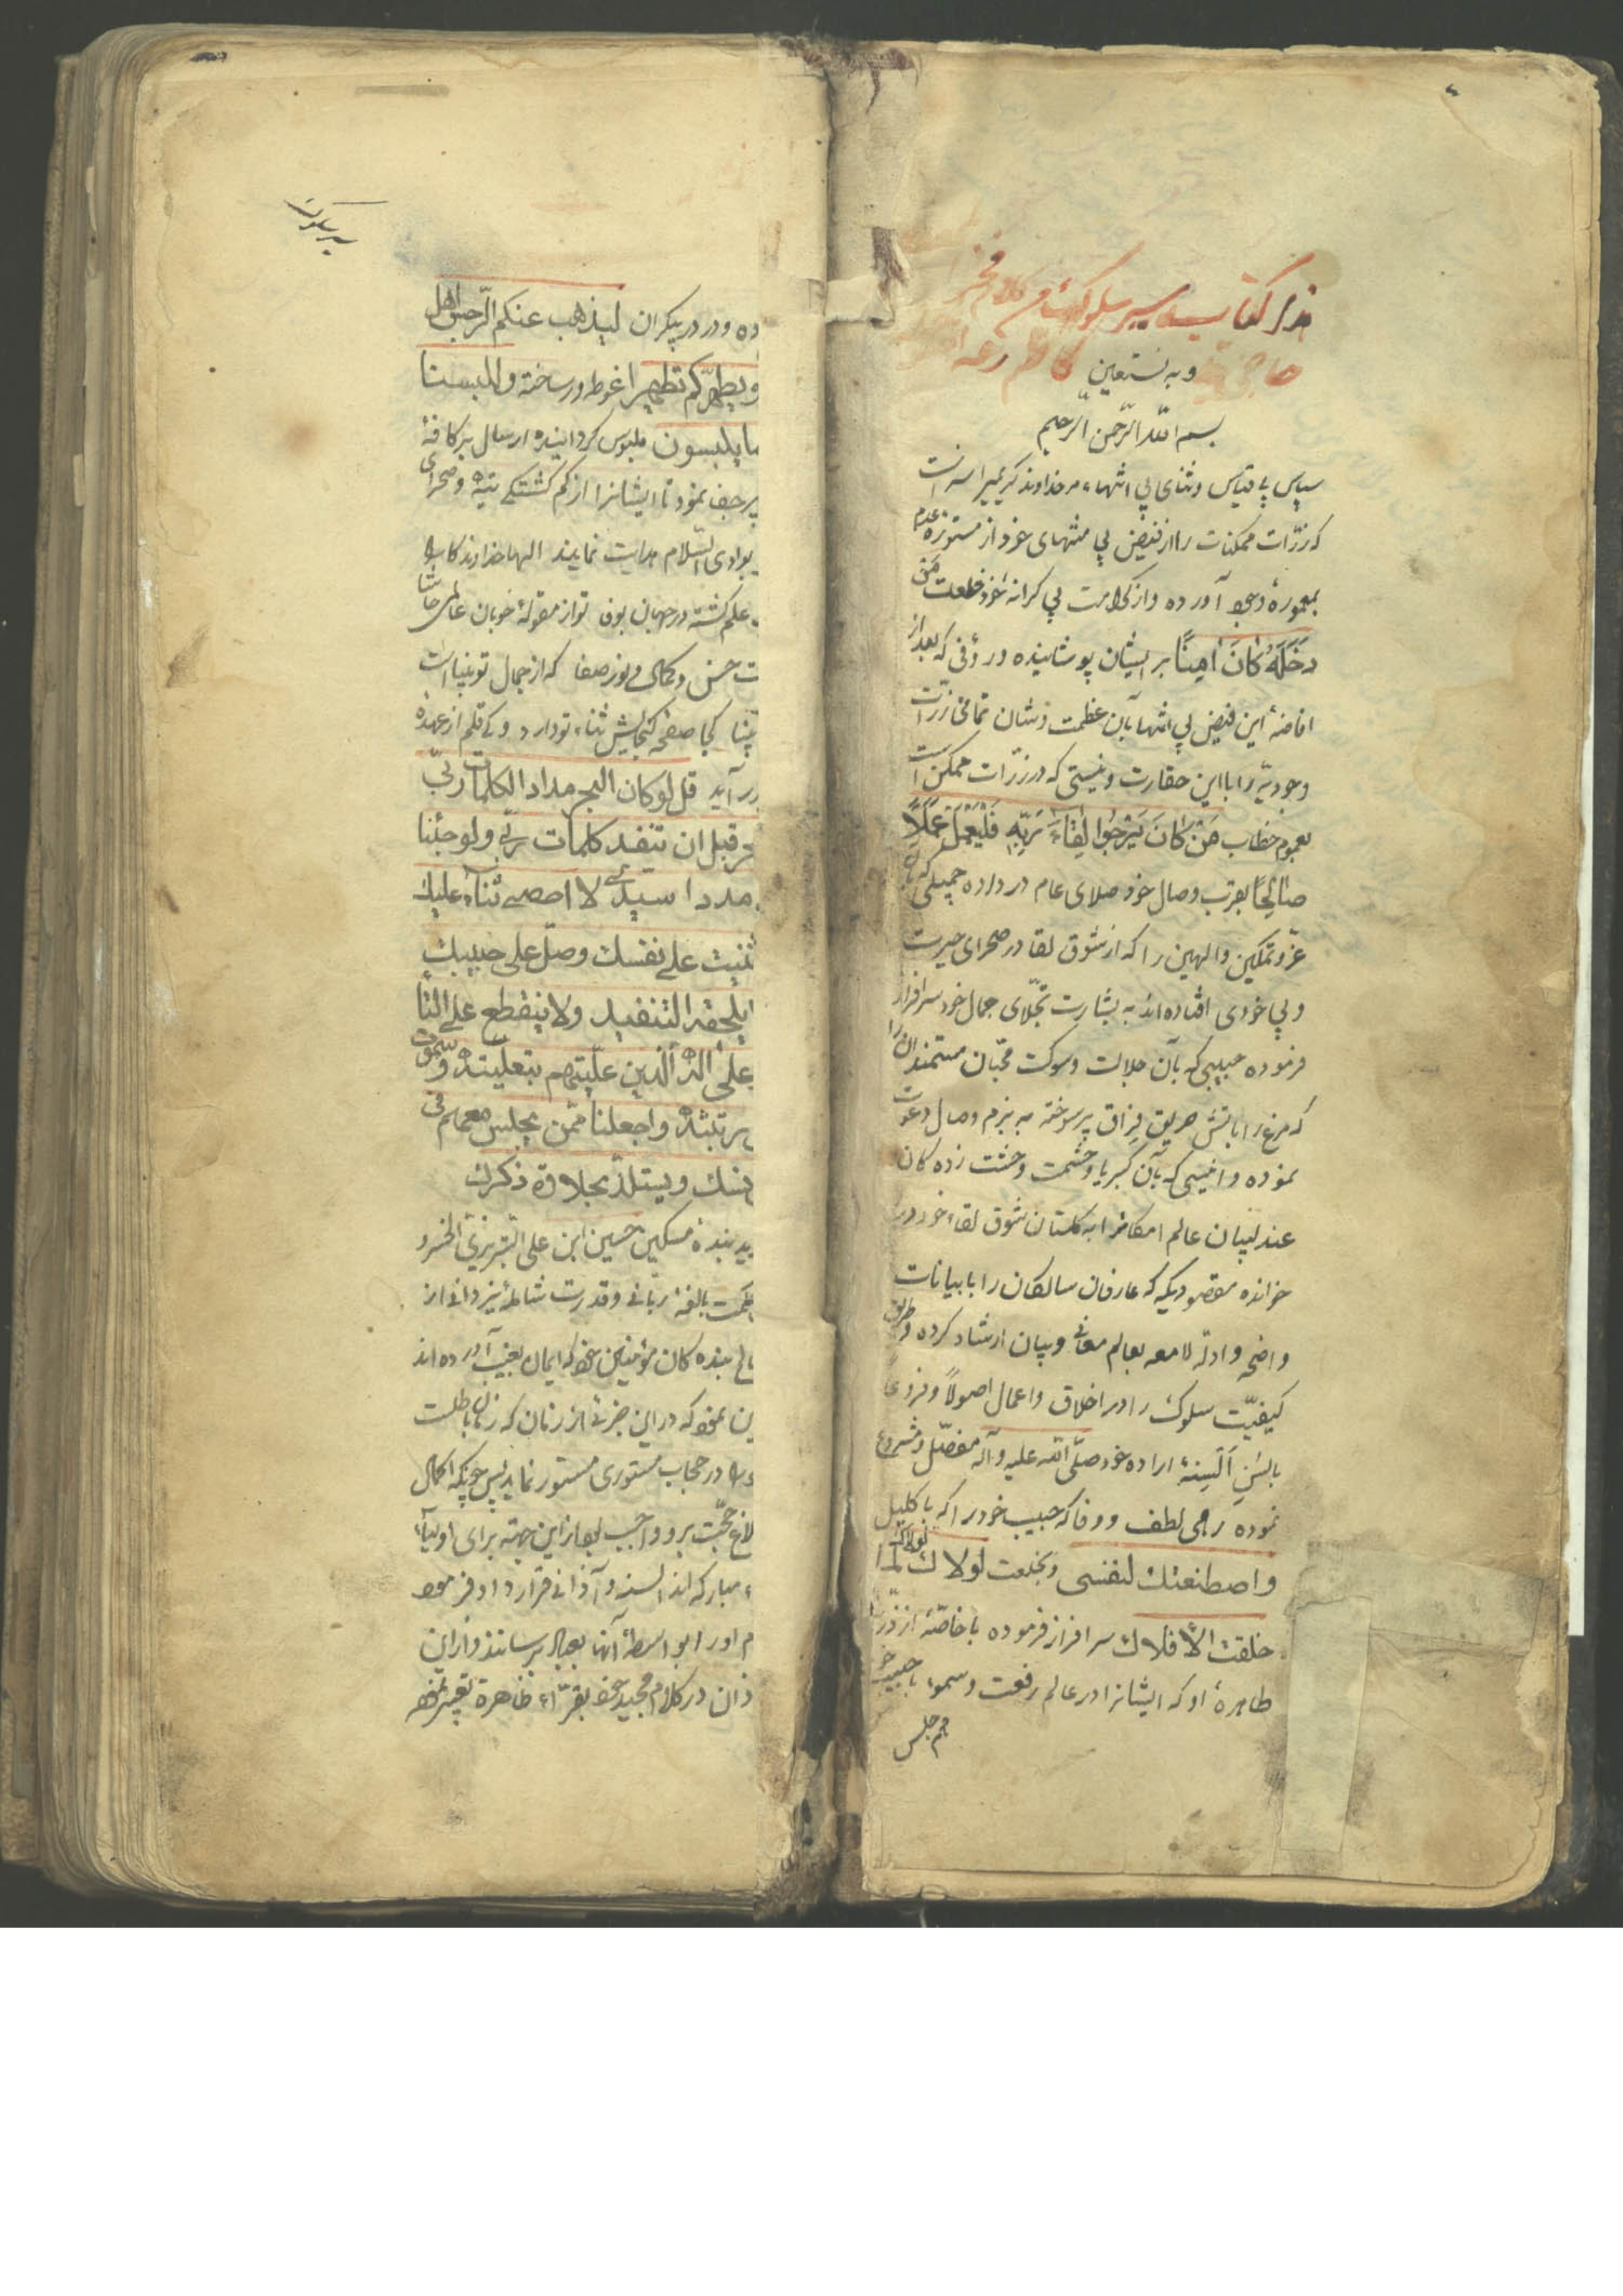 هذا کتاب سیر سلوک من کلام فخر
حاجی کاظم رعه
وبه نستعین
بسم الله الرّحمن الرّحیم
سپاس بی قیاس وثنای بی انتهاء مر خداوند کریمیرا سزاست
که ذرّات ممکنات را از فیض بی منتهای خود از مستوره عدم
بمعمورهٔ وجود آورده واز کرامت بی کرانه خود خلعت مَنْ
دَخَلَهُ کَانَ اٰمِنًا بر ایشان پوشانیده ورؤفی که بعد از
افاضهٔ این فیض بی انتها بآن عظمت وشان تمامی ذرّات
وجودیّه را با این حقارت ونیستی که در ذرّات ممکن است
بعموم خطاب مَنْ کَانَ یَرْجُوا لِقَاءَ رَبِّهِ فَلْیَعْمَلْ عَمَلًا
صٰالِحًا بقرب وصال خود صلای عام در داده جمیلی که بآن
عزّ وتمکین والهین را که از شوق لقا در صحرای حیرت
وبی خودی افتاده اند به بشارت تجلّای جمال خود سرافراز
فرموده حبیبی که بآن جلالت وسوکت محبّان مستمندان را
که مرغ را بآتش حریق فراق پر سوخته به بزم وصال دعوت
نموده وانیسی که بآن کبریا وحشمت وحشت زده کان
عندلیبان عالم امکانرا به گلستان شوق لقاء خود در
خوانده مقصودیکه عارفان سالکان را با بیانات
واضحه وادلّه لامعه بعالم معانی وبیان ارشاد کرده وطریق
کیفیّت سلوک را در اخلاق واعمال اصولاً وفروعًا
بالسُنِ اَلسِنهٔ اراده خود صلّی الله علیه وآله مفصّل ومشروع
نموده رحمی لطف ووفا که حبیب خود را که باکلیل
واصطنعتك لنفسی وبخلعت لولاك لولاك لما
خلقت الافلاك سرافراز فرموده با خاصّهٔ از ذرّیهٔ
طاهرهٔ او که ایشانرا در عالم رفعت وسمو با حبیب خو
هم جلس
سیر سلوک
ده ودر در بیکران لیذهب عنکم الرّجس اهل
ویطهّرکم تطهیرا غوطه ور ساخته وللبسنا
ما یلبسون ملبوس کردانیده ارسال بر کافهٔ
بر جف نمود تا ایشانرا از کم کشتگی تیه وصحرای
بوادی السّلام هدایت نمایند الها خداوندکا
علم کشته در جهان تو از مقولهٔ خوبان عالمی حاشا
ت حسن وکمال ونور صفا که از جمال تو بینا است
کجا صفحه کنجایش ثناء تو دارد وکی قلم از عهده
بر آید قل لو کان البحر مداد الکلمات ربّی
قبل ان تنفد کلمات ربّی ولو جئنا
مددا سیدی لا احصی ثناء علیك
ثنیت علی نفسك وصلّ علی حبیبك
یلحقه التنفید ولا ینقطع علی التأ
علی آله الّذین علّیتهم بتعلیته وسموت
برتبته واجعلنا ممّن یجلس معهم فی
نسك ویستلذّ بحلاوة ذکرك
بنده مسکین حسین ابن علی التبریزی الخسرو
حکمت بالغهٔ ربّانی وقدرت شاملهٔ یزدانی از
بنده کان مؤمنین خود که ایمان بغیب آورده اند
نمود که در این جزئی از زمان که زمان باطلست
در حجاب مستوری مستور نماید پس چونکه اکمال
لاغ حجّت برو واجب بود از این جهته برای اولیآء
مبارکه السنه وآذانی قرار داد فرمود
اورا بواسطهٔ آنها بعباد برسانند واز این
ذان در کلام مجید خود بقرّاء ظاهرة تعبیر نمود